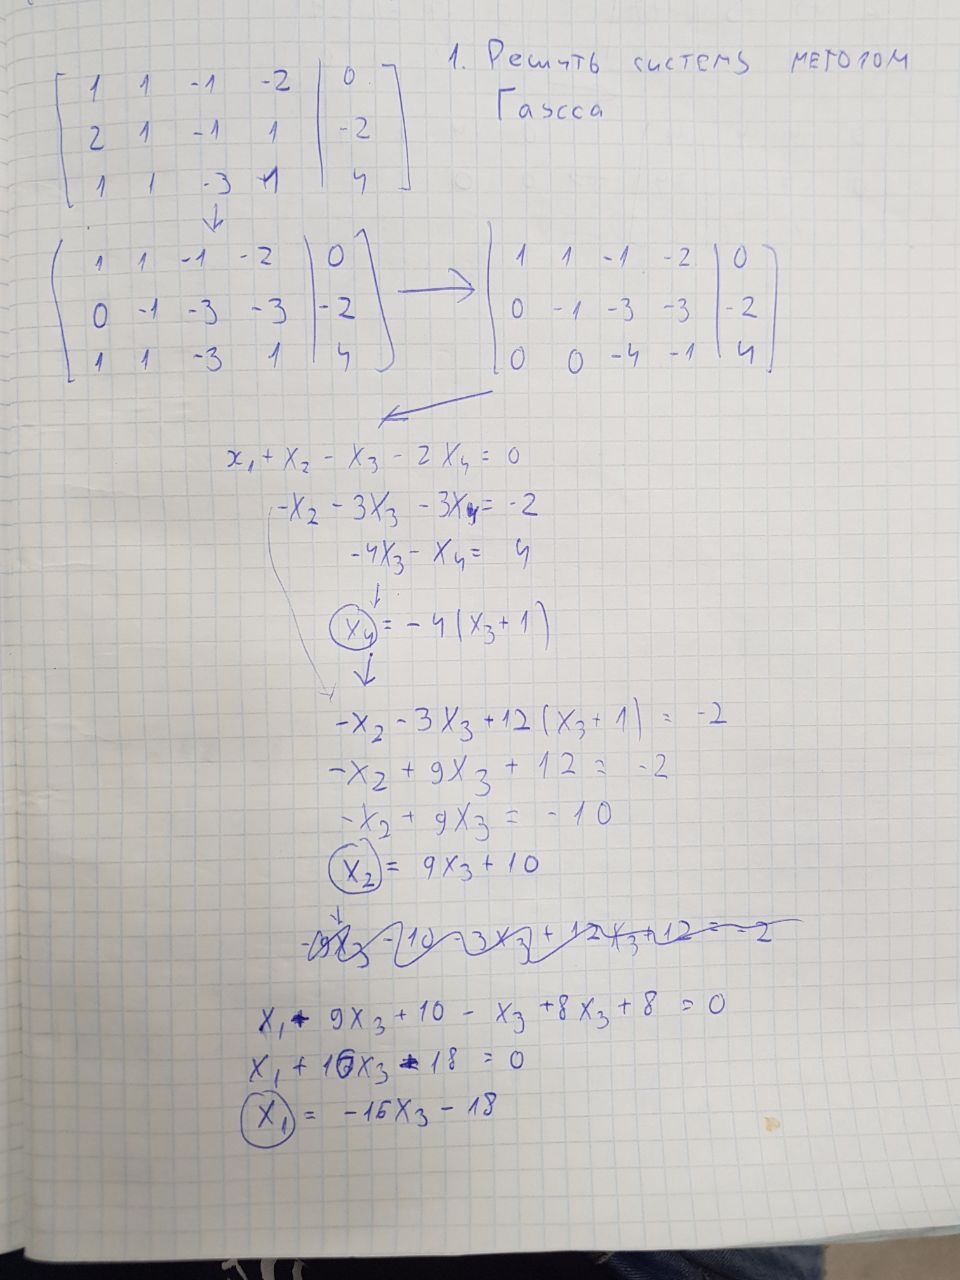 1. Решить систему методом
Гаусса
1 1 -1 -2 | 0
2 1 -1 1 | -2
1 1 -3 1 | 4
↓
1 1 -1 -2 | 0
0 -1 -3 -3 | -2
1 1 -3 1 | 4
→
1 1 -1 -2 | 0
0 -1 -3 -3 | -2
0 0 -4 -1 | 4
x₁ + x₂ - x₃ - 2x₄ = 0
-x₂ - 3x₃ - 3x₄ = -2
-4x₃ - x₄ = 4
↓
x₄ = -4(x₃+1)
↓
-x₂ - 3x₃ + 12(x₃+1) = -2
-x₂ + 9x₃ + 12 = -2
-x₂ + 9x₃ = -10
x₂ = 9x₃ + 10
↓
-9x₃ - 10 - 3x₃ + 12x₃ + 12 = -2
x₁ + 9x₃ + 10 - x₃ + 8x₃ + 8 = 0
x₁ + 16x₃ + 18 = 0
x₁ = -16x₃ - 18